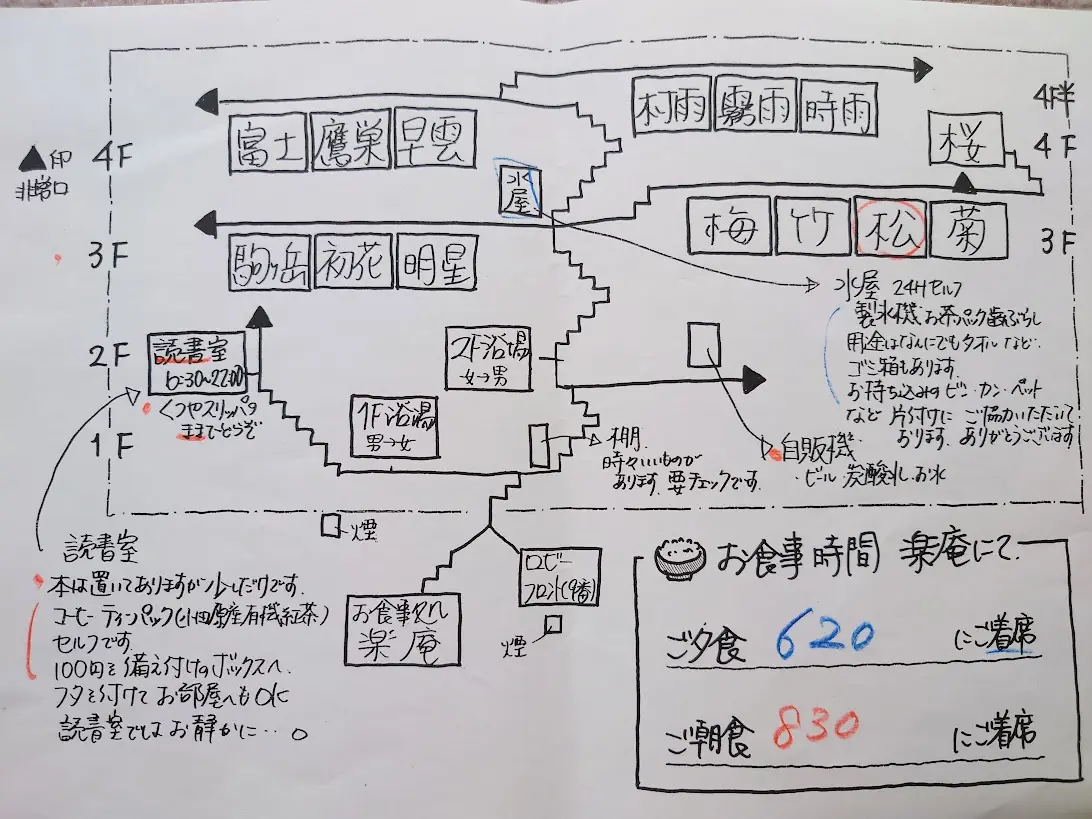 4F半
村雨 霧雨 時雨
富士 鷹巣 早雲
桜
▲印 4F
4F
非常口
水屋
梅 竹 松 菊
3F
3F
駒ヶ岳 初花 明星
水屋 24Hセルフ
製氷機、お茶パック、歯ぶらし
用途はなんにでもタオルなど。
ゴミ箱もあります。
お持ち込みのビン・カン・ペット
など片付けにご協力いただいて
おります。ありがとうございます
2F
読書室
6:30~22:00
2F浴場
女→男
くつやスリッパの
ままでどうぞ
1F
1F浴場
男→女
棚
時々いいものが
あります。要チェックです。
自販機
・ビール・炭酸・乳・お水
煙
読書室
本は置いてありますが少しだけです。
コーヒー ティーパック(小田原産有機紅茶)
セルフです。
100円を備え付けのボックスへ
フタを付けてお部屋へもOK
読書室ではお静かに…。
ロビー
フロント(9番)
煙
お食事処
楽庵
お食事時間 楽庵にて
ご夕食 620 にご着席
ご朝食 830 にご着席